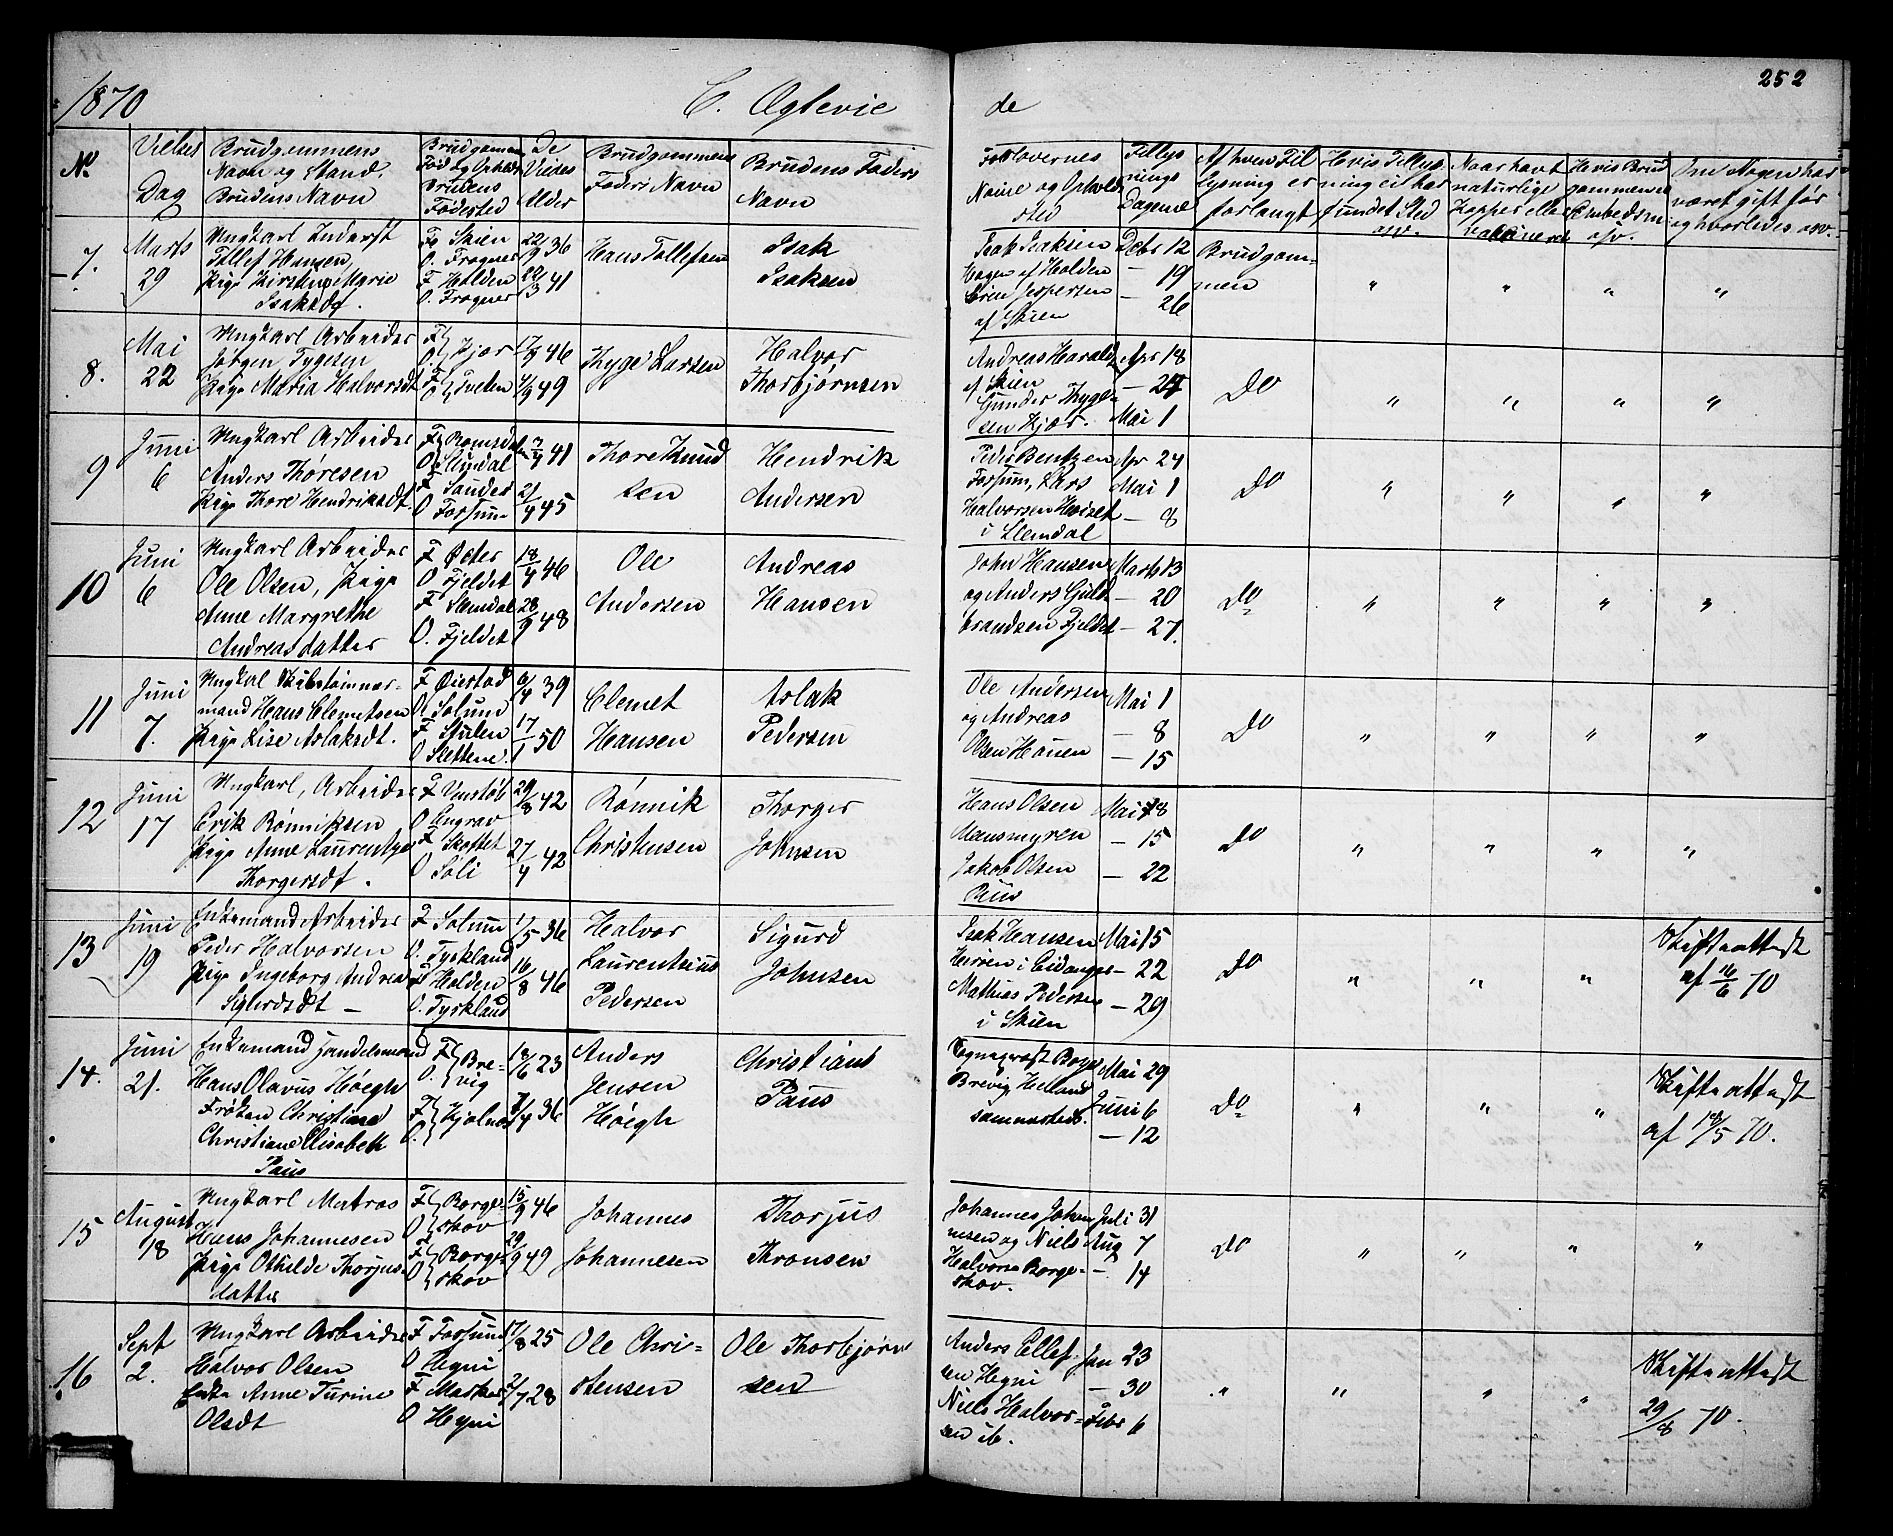 252
1870
C. Ægtevie
de
No
Vielses Dag
Brudgommens Navn og Stand.
Brudens Navn
Brudgommens Fød og Opholds
Brudens Fødested
De Viedes Alder
Brudgommens Faders Navn
Brudens Faders Navn
Forlovernes Navne og Opholdssted
Tillysnings Dagene
Af hvem Tillysning er forlangt
Hvis Tillysning ei har fundet Sted osv.
Naar havt naturlige Kopper eller vaccineret
Hvis Brudgommen er Embedsm osv.
Om Nogen har været gift før og hvorledes osv.
7.
Marts 29
Ungkarl Inderst
Tollef Hansen,
Pige Kirstine Marie
Isaksdt.
F. Skien
O. Frogner
F Holden
O. Frogner
22/9 36
22/3 41
Hans Tollefsen
Isak Isaksen
Isak Isaksen
Hagen af Holden
Jespersen
af Skien
Debr 12
— 19
— 26
Brudgommen
" " " "
8.
Mai 22
Ungkarl Arbeider
Jørgen Tygesen
Pige Maria Halvorsdt
F O Kjær
F O Tveten
17/9 46
4/9 49
Thyge Larsen
Halvor Thorbjørnsen
Andreas Harald
af Skien
Gunder Thygesen Kjær.
Apr 18
— 24
Mai 1
Do
" " " "
9
Juni 6
Ungkarl Arbeider
Anders Thoresen
Pige Thore Hendriksdt.
F Romsdal
O Slemdal
F Sander
O Fossum
41
21/4 45
Thore Knudsen
Hendrik Andersen
Peder Bentzen
Fossum, Lars
Halvorsen
i Slemdal
Apr 24
Mai 1
— 8
Do
" " " "
10
Juni 6
Ungkarl Arbeider
Ole Olsen, Pige
Anne Margrethe
Andreasdatter
F Øster
O Fjeldet
F Slemdal
O. Fjeldet
18/4 46
28/9 48
Ole Andersen
Andreas Hansen
John Hansen
og Anders Guldbrandsen Fjeldet
Marts 13
— 20
— 27.
Do
" " " "
11
Juni 7.
Ungkarl Skibstømmermand Hans Clemetsen
Pige Lise Aslaksdt.
F Øiestad
O Solum
F Stulen
O Slettene
6/4 39
17/1 50
Clemet Hansen
Aslak Pedersen
Ole Andersen
og Andreas
Olsen Hauen
Mai 1
— 8
— 15
Do
" " " "
12
Juni 17
Ungkarl, Arbeider
Erik Rønniksen
Pige Anne Laurentze
Thorgersdt.
F Venstøb
O Engrav
F Skottet
O Soli
29/8 42
27/4 42
Rønnik Christensen
Thorger Johnsen
Hans Olsen
Mansmyren
Jakob Olsen
Riis
Mai 8
— 15
— 22
Do
" " " "
13
Juni 19
Enkemand Arbeider
Peder Halvorsen
Pige Ingeborg Andrea
Sigurdsdt —
F Solum
O. Tyskland
F Holden
O. Tyskland
1/5 36
16/8 46
Halvor Laurentzius Pedersen
Sigurd Johnsen
Isak Hansen
Herren i Eidanger
Mathias Pedersen
i Skien
Mai 15
— 22
— 29
Do
" " "
Skifteattest af 16/6 70
14.
Juni 21.
Enkemand Handelsmand
Hans Olavus Høegh
Frøken Christine
Christiane Elisabeth
Paus
F. O. Brevig
F. O. Kjølnes
18/6 23
7/4 36
Anders Jensen Høegh
Christians Paus
Sogneprest Boye
Brevig Helland
sammesteds.
Mai 29
Juni 6
— 12
Do
" " "
Skifteattest af 18/5 70.
15
August 18
Ungkarl Matros
Hans Johannesen
Pige Othilde Thorjusdatter
F O Borgeskov
F O Borgeskov
15/9 46
29/9 49
Johannes Johannesen
Thorjus Thronsen
Johannes Johannesen og Niels
Halvorsen Borgeskov.
Juli 31
Aug 7
— 14
Do
" " " "
16
Sept 2.
Ungkarl Arbeider
Halvor Olsen
Enke Anne Turine
Olsdt
F Fossum
O Hegni
F
O Hegni
17/8 25
2/7 28
Ole Christensen
Ole Thorbjørnsen
Anders Ellefsen Hegni
Niels Halvorsen ib.
Jan 23
— 30
Febr 6
" " " "
Skifteattest
29/8 70.